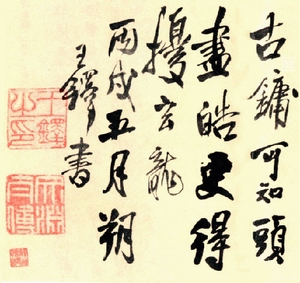 古鏞可知頭
盡皓更得
擾玄龍
丙戌五月朔
王鐸書
王鐸之印